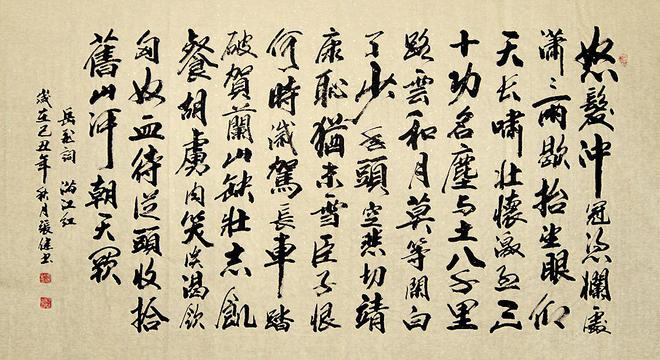 怒髮沖冠憑欄處
瀟〻雨歇抬望眼仰
天長嘯壯懷激烈三
十功名塵与土八千里
路雲和月莫等閑白
了少年頭空悲切靖
康恥猶未雪臣子恨
何時滅駕長車踏
破賀蘭山缺壯志飢
餐胡虜肉笑談渴飲
匈奴血待從頭收拾
舊山河朝天闕
岳飛詞 滿江红
歲在己丑年秋月張继書